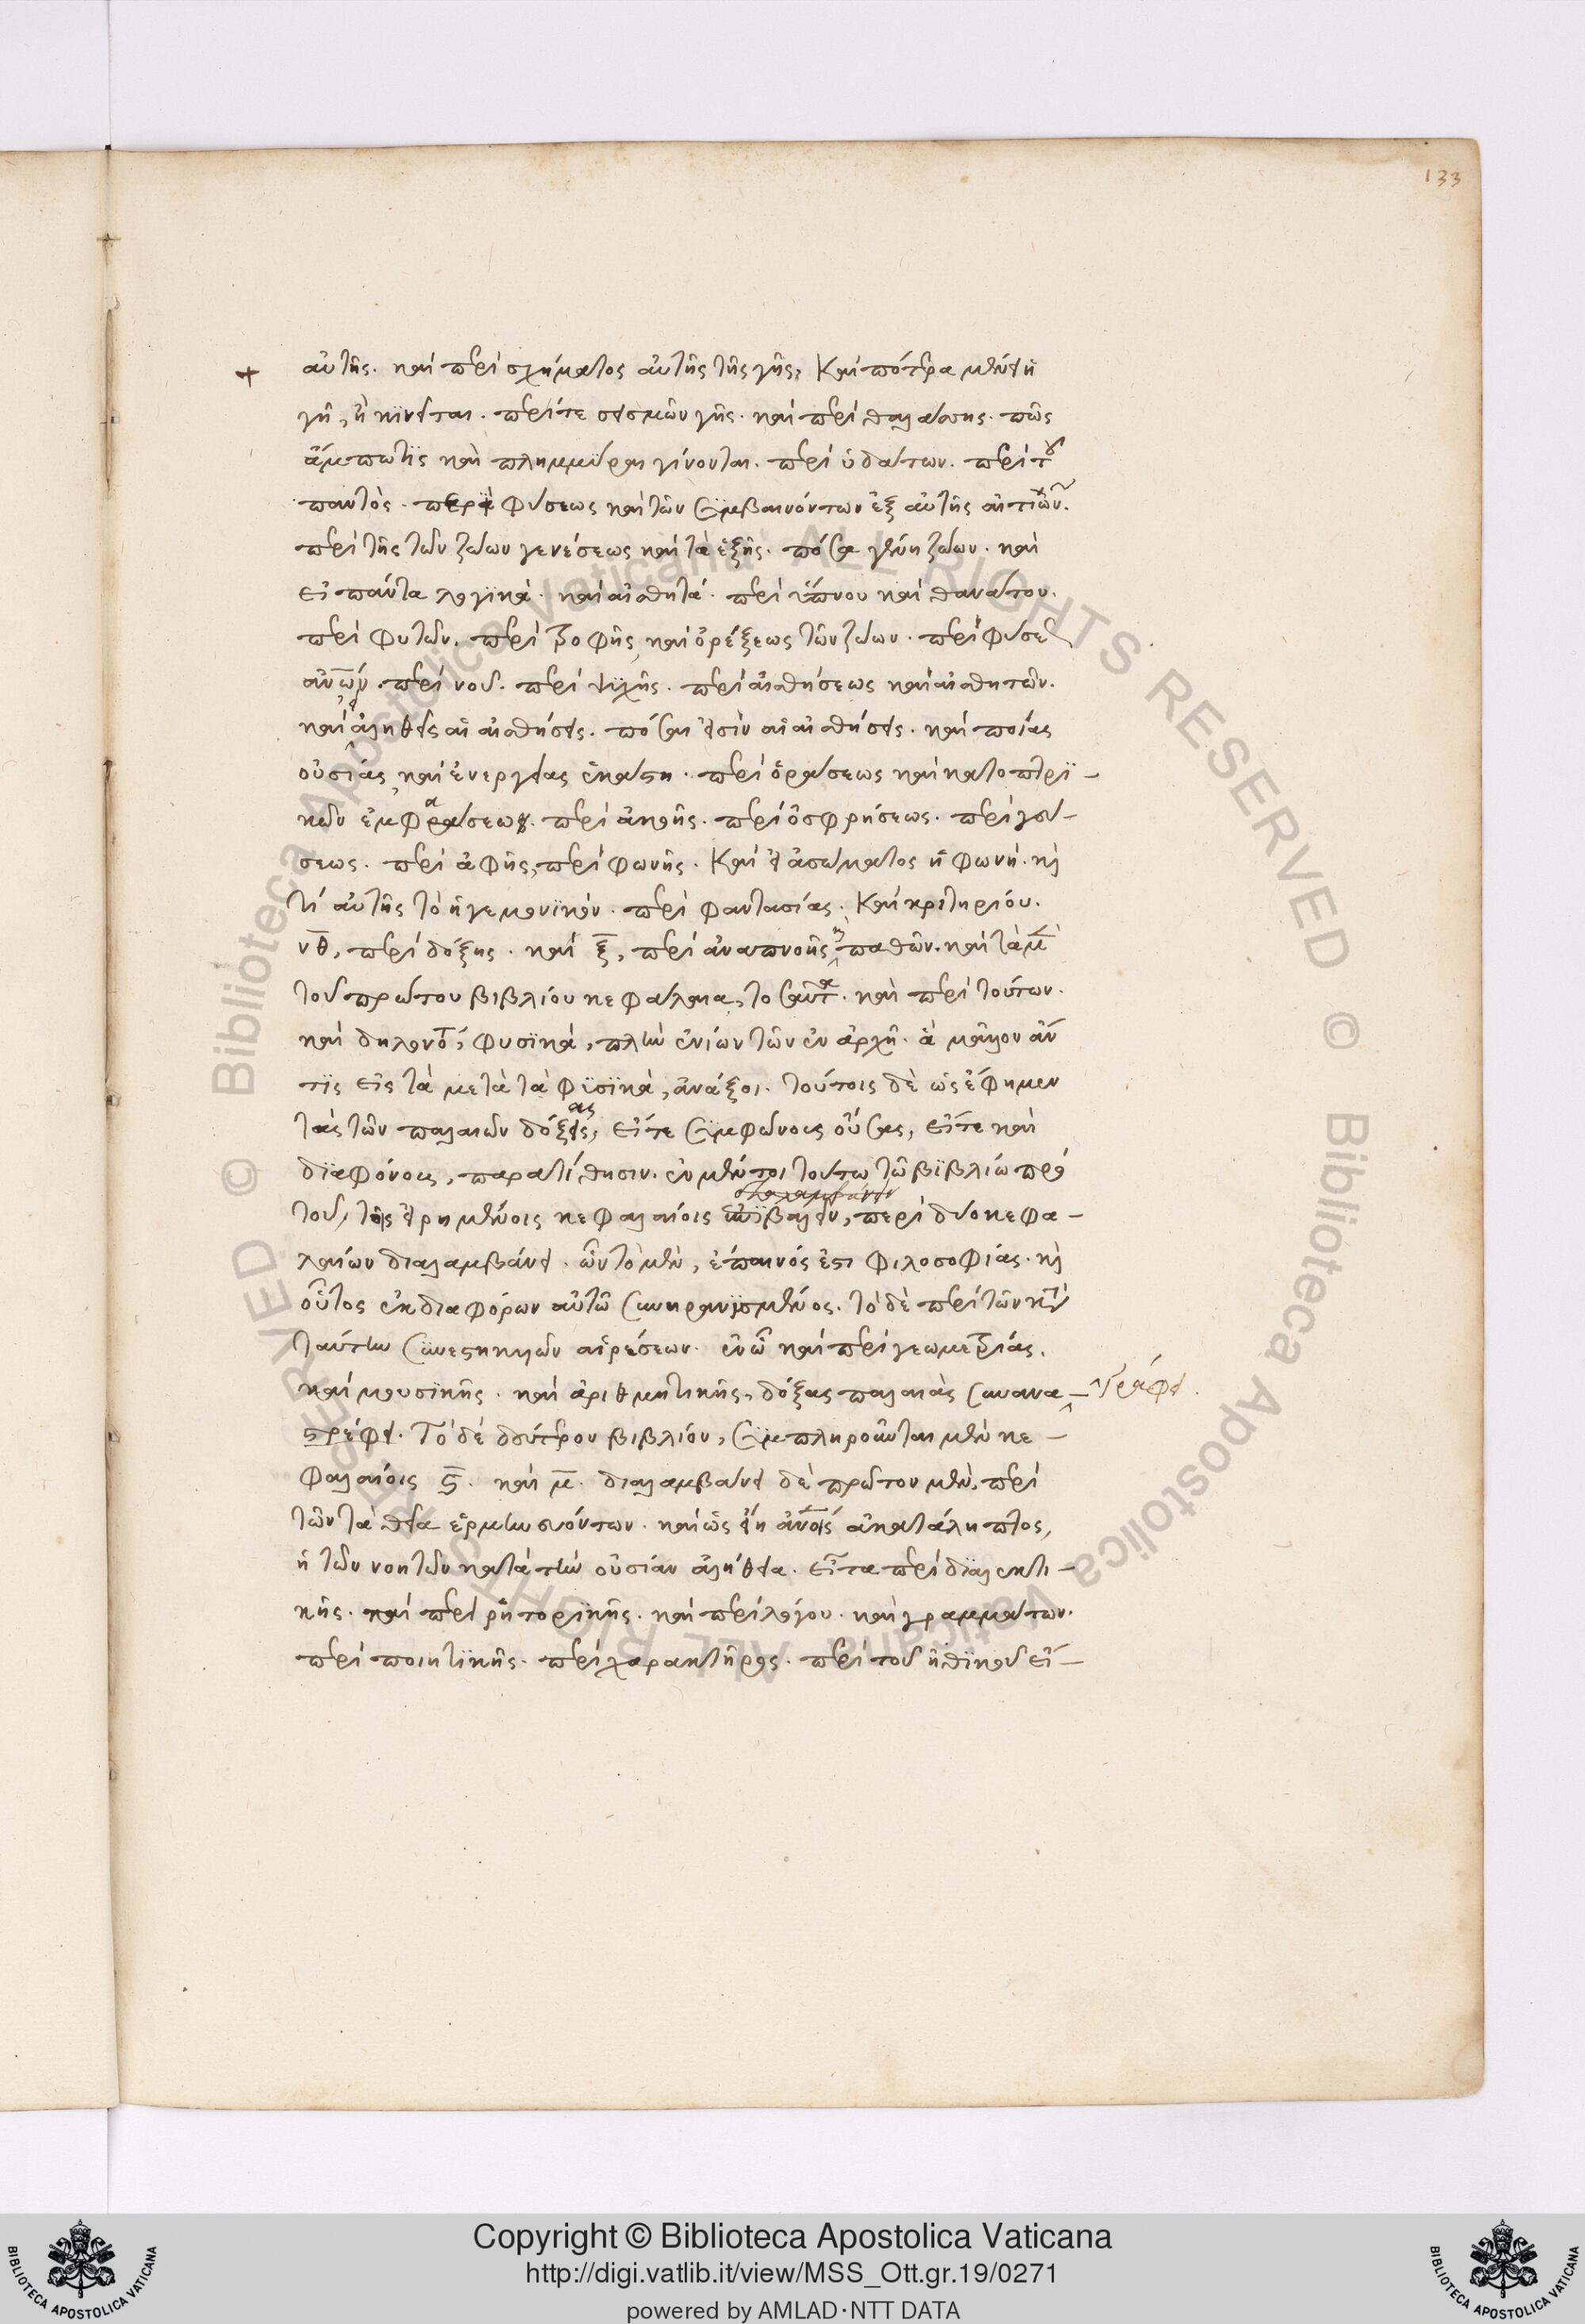 133
+ αὐτῆς. καὶ περὶ σχήματος αὐτῆς τῆς γῆς, καὶ πότερα μένει ἡ
γῆ, ἢ κινεῖται. περί τε σεισμῶν γῆς. καὶ περὶ θαλάσσης. πῶς
ἄμπωτις καὶ πλημμύραι γίνονται. περὶ ὑδάτων. περὶ τοῦ
παντὸς. περὶ φύσεως καὶ τῶν συμβαινόντων ἐξ αὐτῆς αἰτιῶν.
περὶ τῆς τῶν ζώων γενέσεως καὶ τὰ ἑξῆς. πόσα γένη ζώων. καὶ
εἰ πάντα λογικά. καὶ αἰσθητά. περὶ ὕπνου καὶ θανάτου.
περὶ φυτῶν. περὶ τροφῆς καὶ ὀρέξεως τῶν ζώων. περὶ φύσεως
ἀνῶν. περὶ νοῦ. περὶ ψυχῆς. περὶ αἰσθήσεως καὶ αἰσθητῶν.
καὶ εἰ ἀληθεῖς αἱ αἰσθήσεις. πόσαι εἰσὶν αἱ αἰσθήσεις. καὶ ποίας
οὐσίας, καὶ ἐνεργείας ἑκάστη. περὶ ὁράσεως καὶ κατοπτρι-
κῶν ἐμφάσεων. περὶ ἀκοῆς. περὶ ὀσφρήσεως. περὶ γεύ-
σεως. περὶ ἁφῆς, περὶ φωνῆς. καὶ εἰ ἀσώματος ἡ φωνή. κὶ
τί αὐτῆς τὸ ἡγεμονικόν. περὶ φαντασίας. καὶ κριτηρίου.
νθ, περὶ δόξης. καὶ ξ, περὶ ἀναπνοῆς κὶ παθῶν. καὶ τὰ μὲν
τοῦ πρώτου βιβλίου κεφάλαια, τοσαῦτα. καὶ περὶ τούτων.
καὶ δηλονότι, φυσικά, πλὴν ἐνίων τῶν ἐν ἀρχῇ. ἃ μᾶλλον ἄν
τις εἰς τὰ μετὰ τὰ φυσικά, ἀνάξοι. τούτοις δὲ ὡς ἔφημεν
τὰς τῶν παλαιῶν δόξας, εἴτε συμφώνους οὔσας, εἴτε καὶ
διαφόνους, παρατίθησιν. ἐν μέντοι τούτω τῶ βιβλίω πρὸ
τοῦ, τοῖς εἰρημένοις κεφαλαίοις ἐπιβαλεῖν, περὶ δύο κεφα-
λαίων διαλαμβάνει. ὧν τὸ μὲν, ἔπαινός ἐστι φιλοσοφίας. κὶ
οὗτος ἐκ διαφόρων αὐτῶ συνηρανισμένος. τὸ δὲ περὶ τῶν κατ᾽
ταύτην συνεστηκυιῶν αἱρέσεων. ἐν ᾧ καὶ περὶ γεωμετρίας.
καὶ μουσικῆς. καὶ ἀριθμητικῆς, δόξας παλαιὰς συνανα- γράφει.
στρέφει. Τὸ δὲ δεύτερον βιβλίον, συμπληροῦνται μὲν κε-
φαλαίοις ϛ. καὶ μ. διαλαμβάνει δὲ πρῶτον μὲν. περὶ
τῶν τὰ θεῖα ἑρμηνευόντων. καὶ ὡς εἴη ἀνοις ἀκατάληπτος,
ἡ τῶν νοητῶν κατὰ τὴν οὐσίαν ἀλήθεια. εἶτα περὶ διαλεκτι-
κῆς. καὶ περὶ ῥητορικῆς. καὶ περὶ λόγου. καὶ γραμμάτων.
περὶ ποιητικῆς. περὶ χαρακτῆρος. περὶ τοῦ ἠθικοῦ εἴ-
Copyright © Biblioteca Apostolica Vaticana
http://digi.vatlib.it/view/MSS_Ott.gr.19/0271
powered by AMLAD·NTT DATA
BIBLIOTECA APOSTOLICA VATICANA
BIBLIOTECA APOSTOLICA VATICANA
© Biblioteca Apostolica Vaticana ALL RIGHTS RESERVED
© Biblioteca Apostolica Vaticana ALL RIGHTS RESERVED